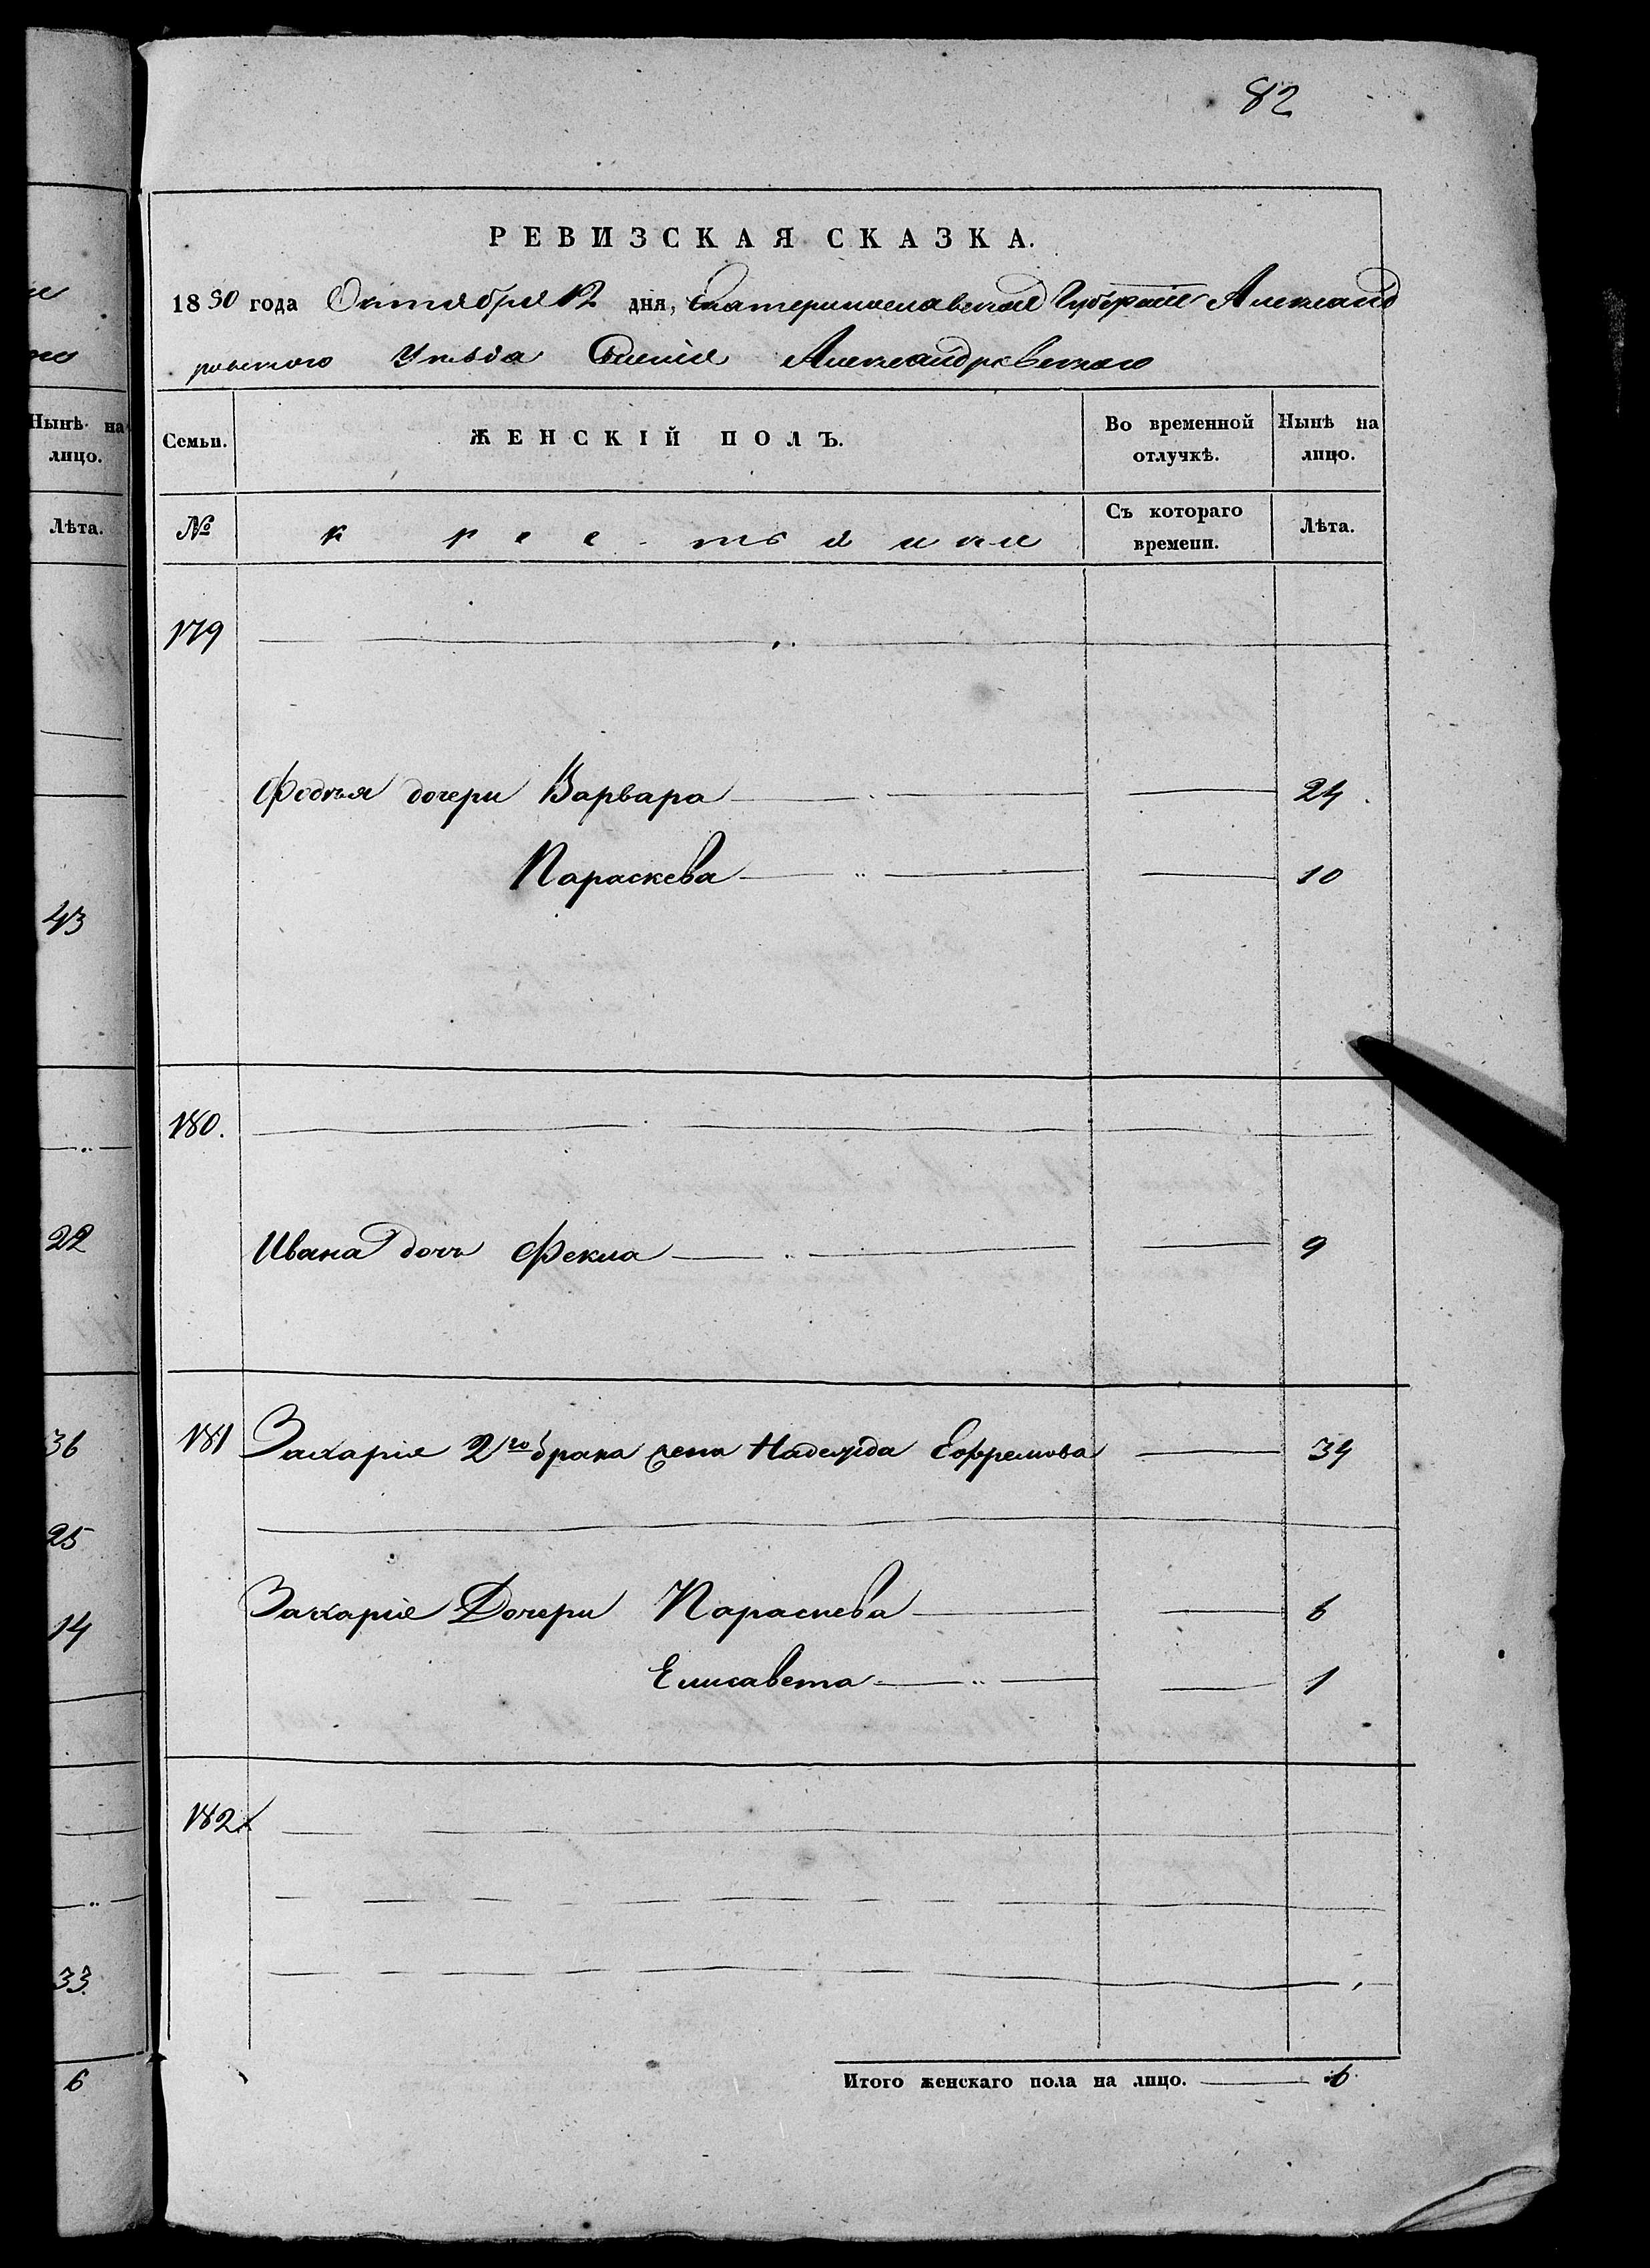 82
РЕВИЗСКАЯ СКАЗКА.
1850 года Октября 12 дня, Екатеринославской Губернии Александ
ровского Уезда Селенія Александровскаго
Нынѣ на лицо.
Лѣта.
43
22
36
25
14
33
6
Семьи. ЖЕНСКІЙ ПОЛЪ. Во временной отлучкѣ. Нынѣ на лицо.
№ крестьянки Съ котораго времени. Лѣта.
179
Фодѣя дочери Варвара 24
Параскева 10
180.
Ивана дочь Фекла 9
181 Захарія 2го брака жена Надежда Ефремова 34
Захарія Дочери Параскева 6
Елисавета 1
182
Итого женскаго пола на лицо. 6